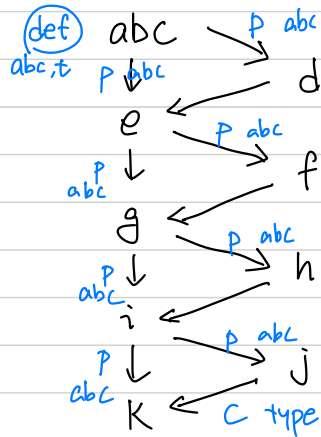 def abc P abc
abc,t P abc d
e P abc
P abc f
g P abc
P abc h
i P abc
P abc j
K C type